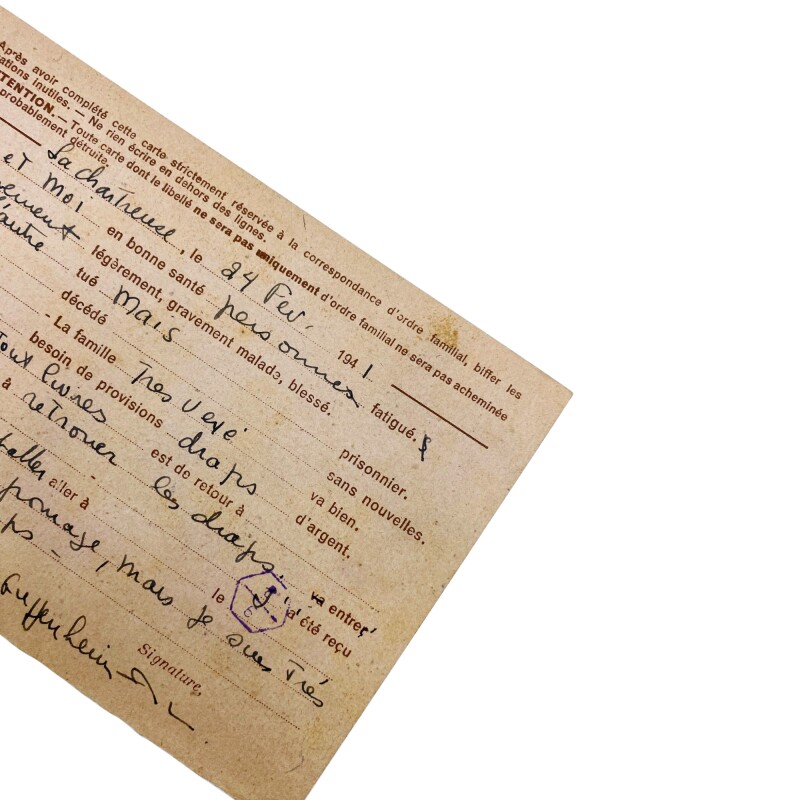 Après avoir complété cette carte strictement réservée à la correspondance d'ordre familial, biffer les
ations inutiles. — Ne rien écrire en dehors des lignes.
TTENTION. — Toute carte dont le libellé ne sera pas uniquement d'ordre familial ne sera pas acheminée
probablement détruite.
La chartreuse, le 24 Fev. 1941
et moi en bonne santé personnes fatigué.s
légèrement, gravement malade, blessé.
l'autre tué Mais prisonnier.
décédé sans nouvelles.
- La famille Tres vexé va bien.
besoin de provisions draps d'argent.
tout livres est de retour à
à retrouver les draps.
aller à va entrer
le a été reçu
fromage, mais je suis Très
Signature,
Guggenheim